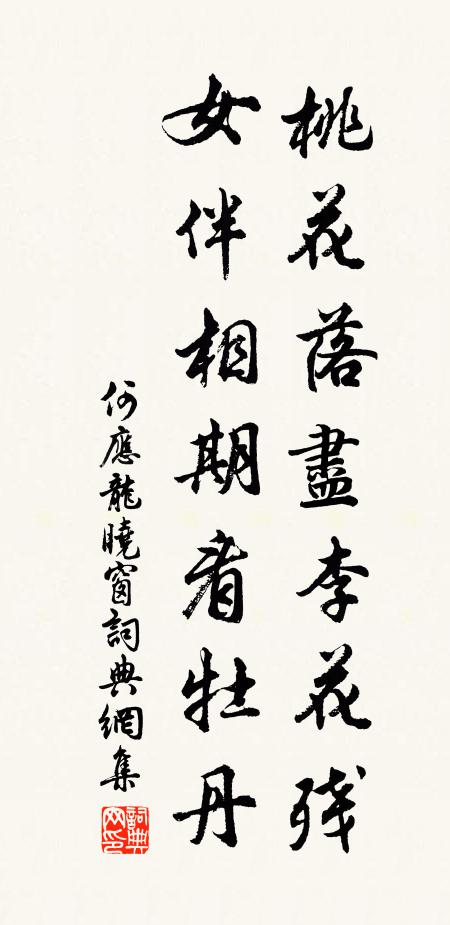 桃花落盡李花残
女伴相期看牡丹
何應龍曉窗詞典網集
詞典網印